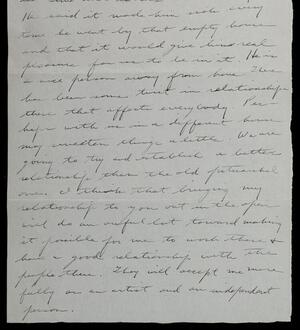 He said it made him sick every
time he went by that empty house
and that it would give him real
pleasure for us to be in it. He is
a nice person away from home. There
has been some twist in relationships
there that affects everybody. Per-
haps with us in a different house
may straighten things a little. We are
going to try and establish a better
relationship than the old patriarchal
one. I think that bringing my
relationship to you out in the open
will do an awful lot toward making
it possible for me to work there &
have a good relationship with the
people there. They will accept me more
fully as an artist and an independent
person.